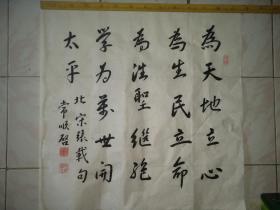 為天地立心
為生民立命
為往聖继绝
学为萬世開
太平
北宋張載句
常順啓